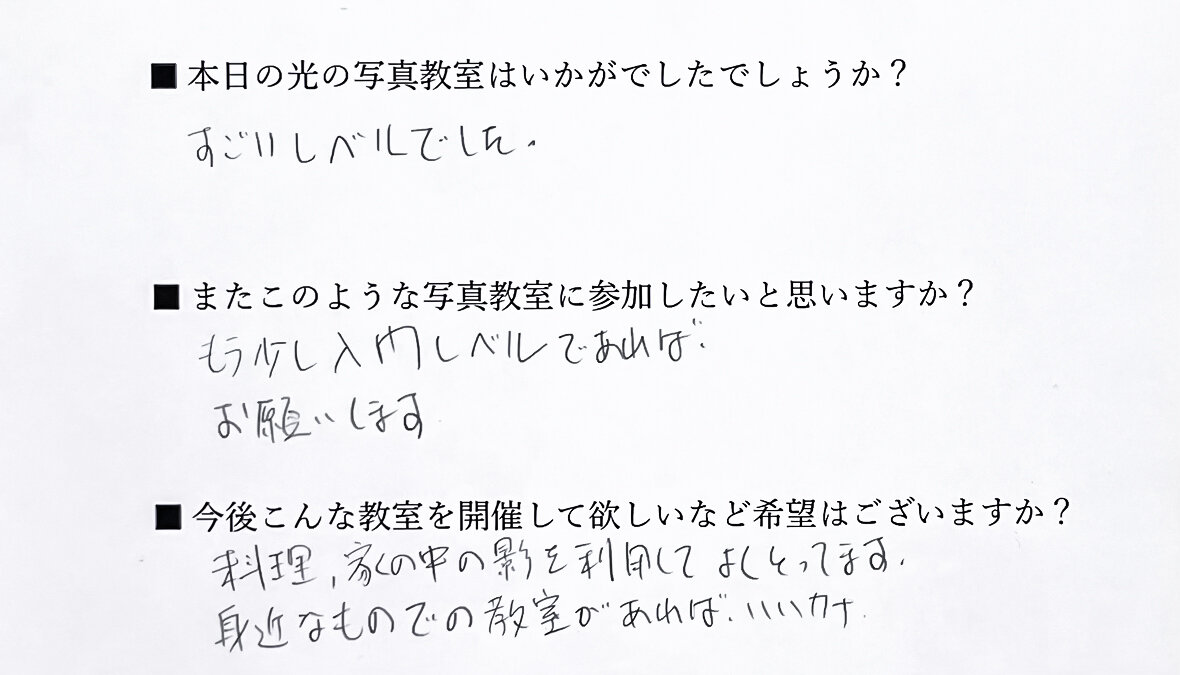 ■本日の光の写真教室はいかがでしたでしょうか？
すごいレベルでした.
■またこのような写真教室に参加したいと思いますか？
もう少し入門レベルであれば.
お願いします
■今後こんな教室を開催して欲しいなど希望はございますか？
料理,家の中の影を利用してよくとってます.
身近なものでの教室があれば.いいカナ.